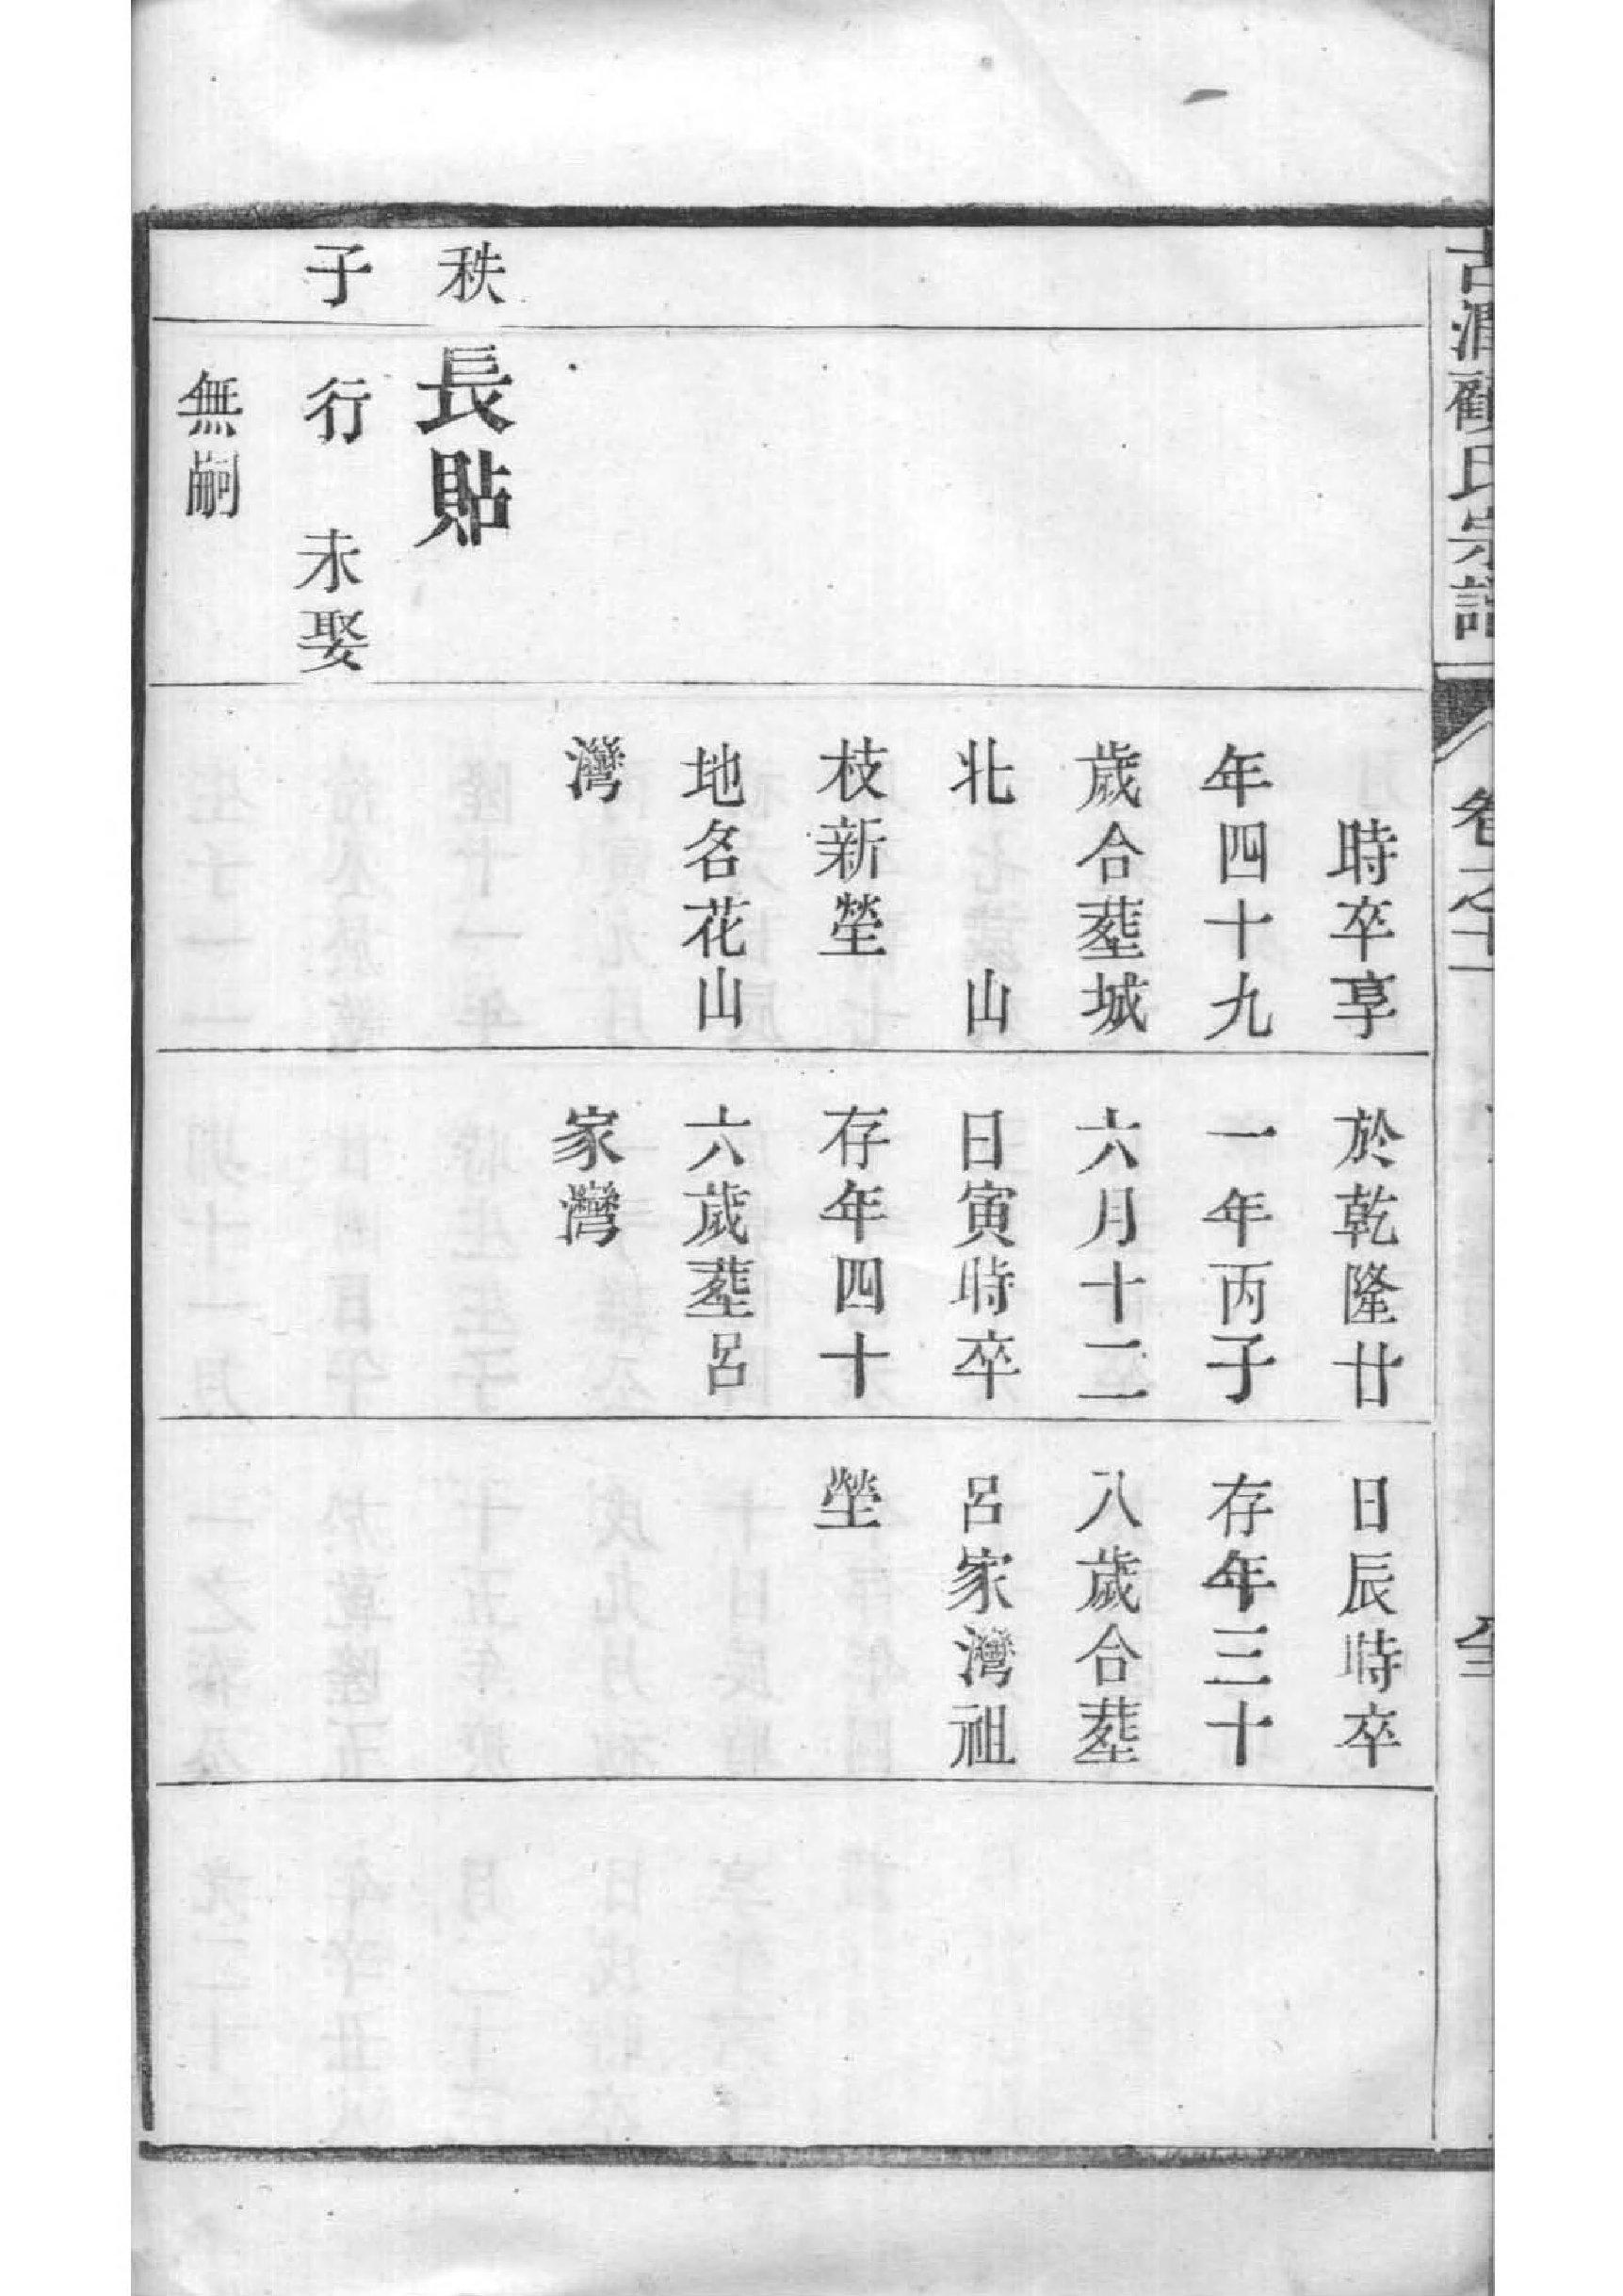 古潤顧氏宗譜
卷之十
秩
子
長貼
行 未娶
無嗣
時卒享
年四十九
歲合塟城
北 山
枝新塋
地名花山
灣
於乾隆廿
一年丙子
六月十二
日寅時卒
存年四十
六歲塟呂
家灣
日辰時卒
存年三十
八歲合塟
呂家灣祖
塋